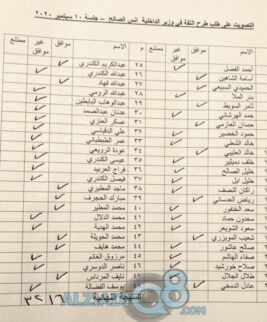 التصويت على طلب طرح الثقة في وزير الداخلية أنس الصالح – جلسة ١٠ سبتمبر ٢٠٢٠
الاسم موافق غير موافق ممتنع م الاسم موافق غير موافق ممتنع
أحمد الفضل ٢٥ عبدالكريم الكندري
أسامة الشاهين ٢٦ عبدالله الكندري
الحميدي السبيعي ٢٧ عبدالله فهاد
بدر الملا ٢٨ عبدالله الرومي
ثامر السويط ٢٩ عبدالوهاب البابطين
حمد الهرشاني ٣٠ عدنان عبدالصمد
حمدان العازمي ٣١ عسكر العنزي
حمود الخضير ٣٢ علي الدقباسي
خالد الشطي ٣٣ عمر الطبطبائي
خالد العتيبي ٣٤ عودة الرويعي
خلف دميثير ٣٥ عيسى الكندري
خليل الصالح ٣٦ فراج العربيد
خليل ابل ٣٧ فيصل الكندري
راكان النصف ٣٨ ماجد المطيري
رياض العدساني ٣٩ مبارك الحجرف
سعد الخنفور ٤٠ محمد المطير
سعدون حماد ٤١ محمد الدلال
سعود الشويعر ٤٢ محمد الهدية
شعيب المويزري ٤٣ محمد الحويلة
صالح عاشور ٤٤ محمد هايف
صفاء الهاشم ٤٥ مرزوق الغانم
صلاح خورشيد ٤٦ ناصر الدوسري
طلال الجلال ٤٧ نايف المرداس
عادل الدمخي ٤٨ يوسف الفضالة
النتيجة النهائية ١٦ ٣٢